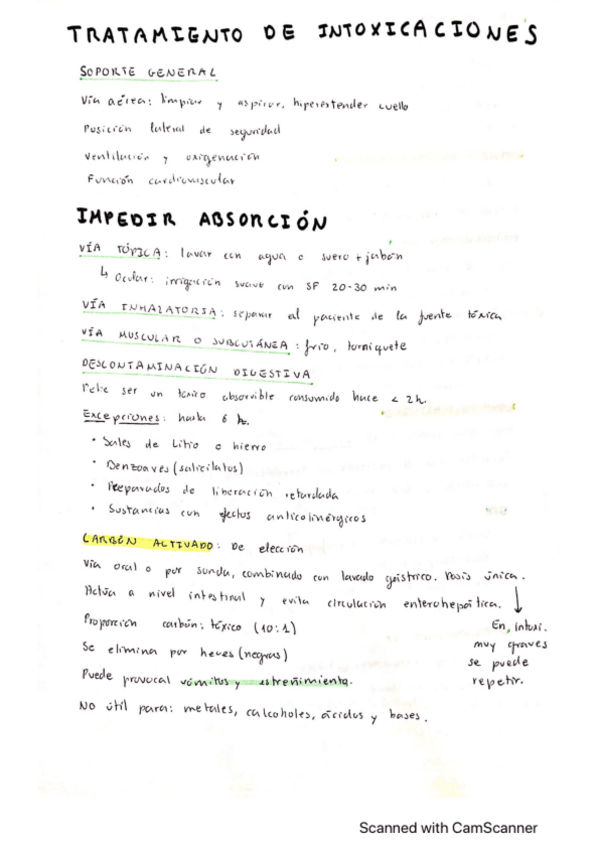 TRATAMIENTO DE INTOXICACIONES
SOPORTE GENERAL
Vía aérea: limpiar y aspirar, hiperextender cuello
Posición lateral de seguridad
Ventilación y oxigenación
Función cardiovascular
IMPEDIR ABSORCIÓN
VÍA TÓPICA: lavar con agua o suero + jabón
↳ Ocular: irrigación suave con SF 20-30 min
VÍA INHALATORIA: separar al paciente de la fuente tóxica
VÍA MUSCULAR O SUBCUTÁNEA: frío, torniquete
DESCONTAMINACIÓN DIGESTIVA
Debe ser un tóxico absorvible consumido hace < 2h.
Excepciones: hasta 6 h.
• Sales de Litio o hierro
• Benzoaves (salicilatos)
• Preparados de liberación retardada
• Sustancias con efectos anticolinérgicos
CARBÓN ACTIVADO: De elección
Vía oral o por sonda, combinado con lavado gástrico. Dosis única.
Actúa a nivel intestinal y evita circulación enterohepática. ↓
Proporción carbón: tóxico (10:1)
En intoxi.
muy graves
se puede
repetir.
Se elimina por heces (negras)
Puede provocar vómitos y estreñimiento.
No útil para: metales, calcoholes, ácidos y bases.
Scanned with CamScanner